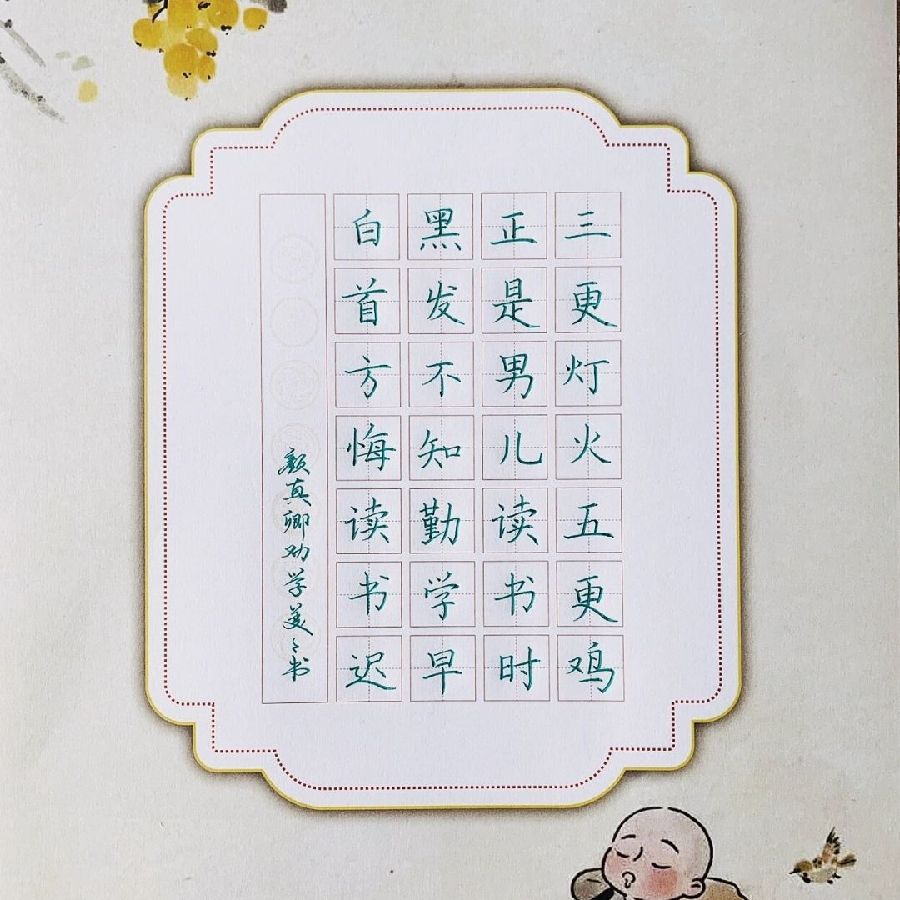 三更灯火五更鸡
正是男儿读书时
黑发不知勤学早
白首方悔读书迟
颜真卿劝学美々书